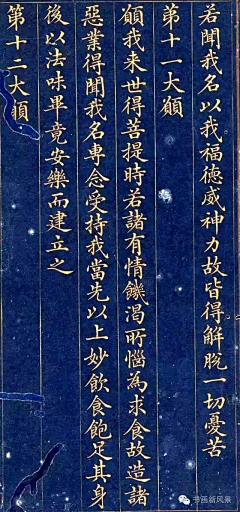 若聞我名以我福德威神力故皆得解脫一切憂苦
第十一大願
願我来世得菩提時若諸有情饑渴所惱為求食故造諸
惡業得聞我名專念受持我當先以上妙飲食飽足其身
後以法味畢竟安樂而建立之
第十二大願
书画新风景